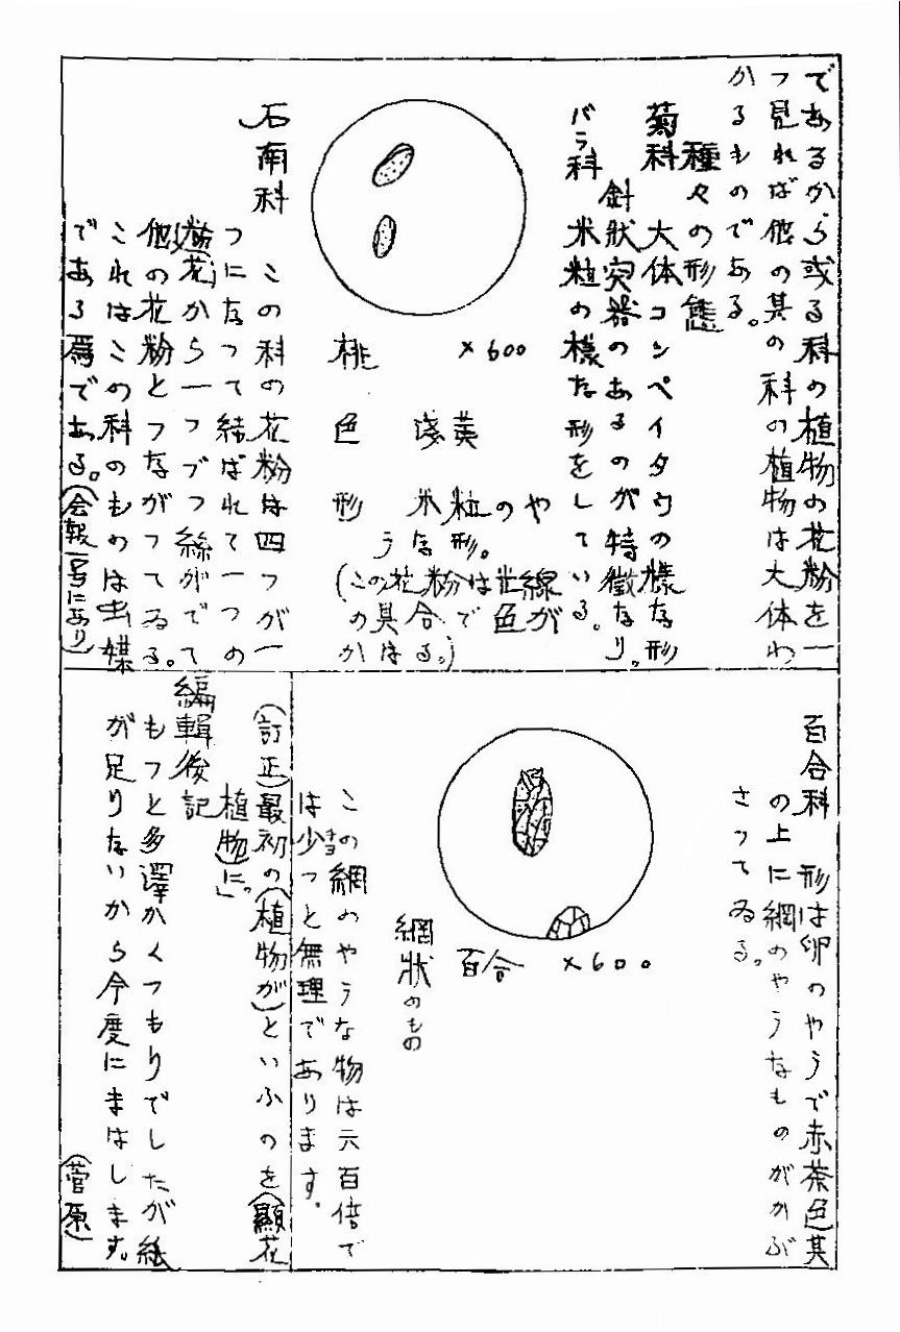 であるから或る科の植物の花粉を一
つ見れば他の其の科の植物は大体わ
かるものである。
種々の形態
菊科 大体コンペイタウの様な形
針狀突器のあるのが特徴なり。
バラ科 米粒の様な形をしている。
桃 ×600
色 淺黄
形 米粒のや
うな形。
(この花粉は光線
の具合で色が
かはる。)
石南科 この科の花粉は四つが一
つになって結ばれて一つの
(花)粉から一つづつ絲がでて
他の花粉とつながってゐる。
これはこの科のものは虫媒
である為である。(会報一号にあり)
百合科 形は卵のやうで赤茶色其
の上に網のやうなものがかぶ
さってゐる。
百合 ×600
網狀のもの
この網のやうな物は六百倍で
は少っと無理であります。
(訂正)最初の(植物が)といふのを(顯花
植物)に。」
編輯後記
もっと多澤かくつもりでしたが紙
が足りないから今度にまはします。
(菅原)